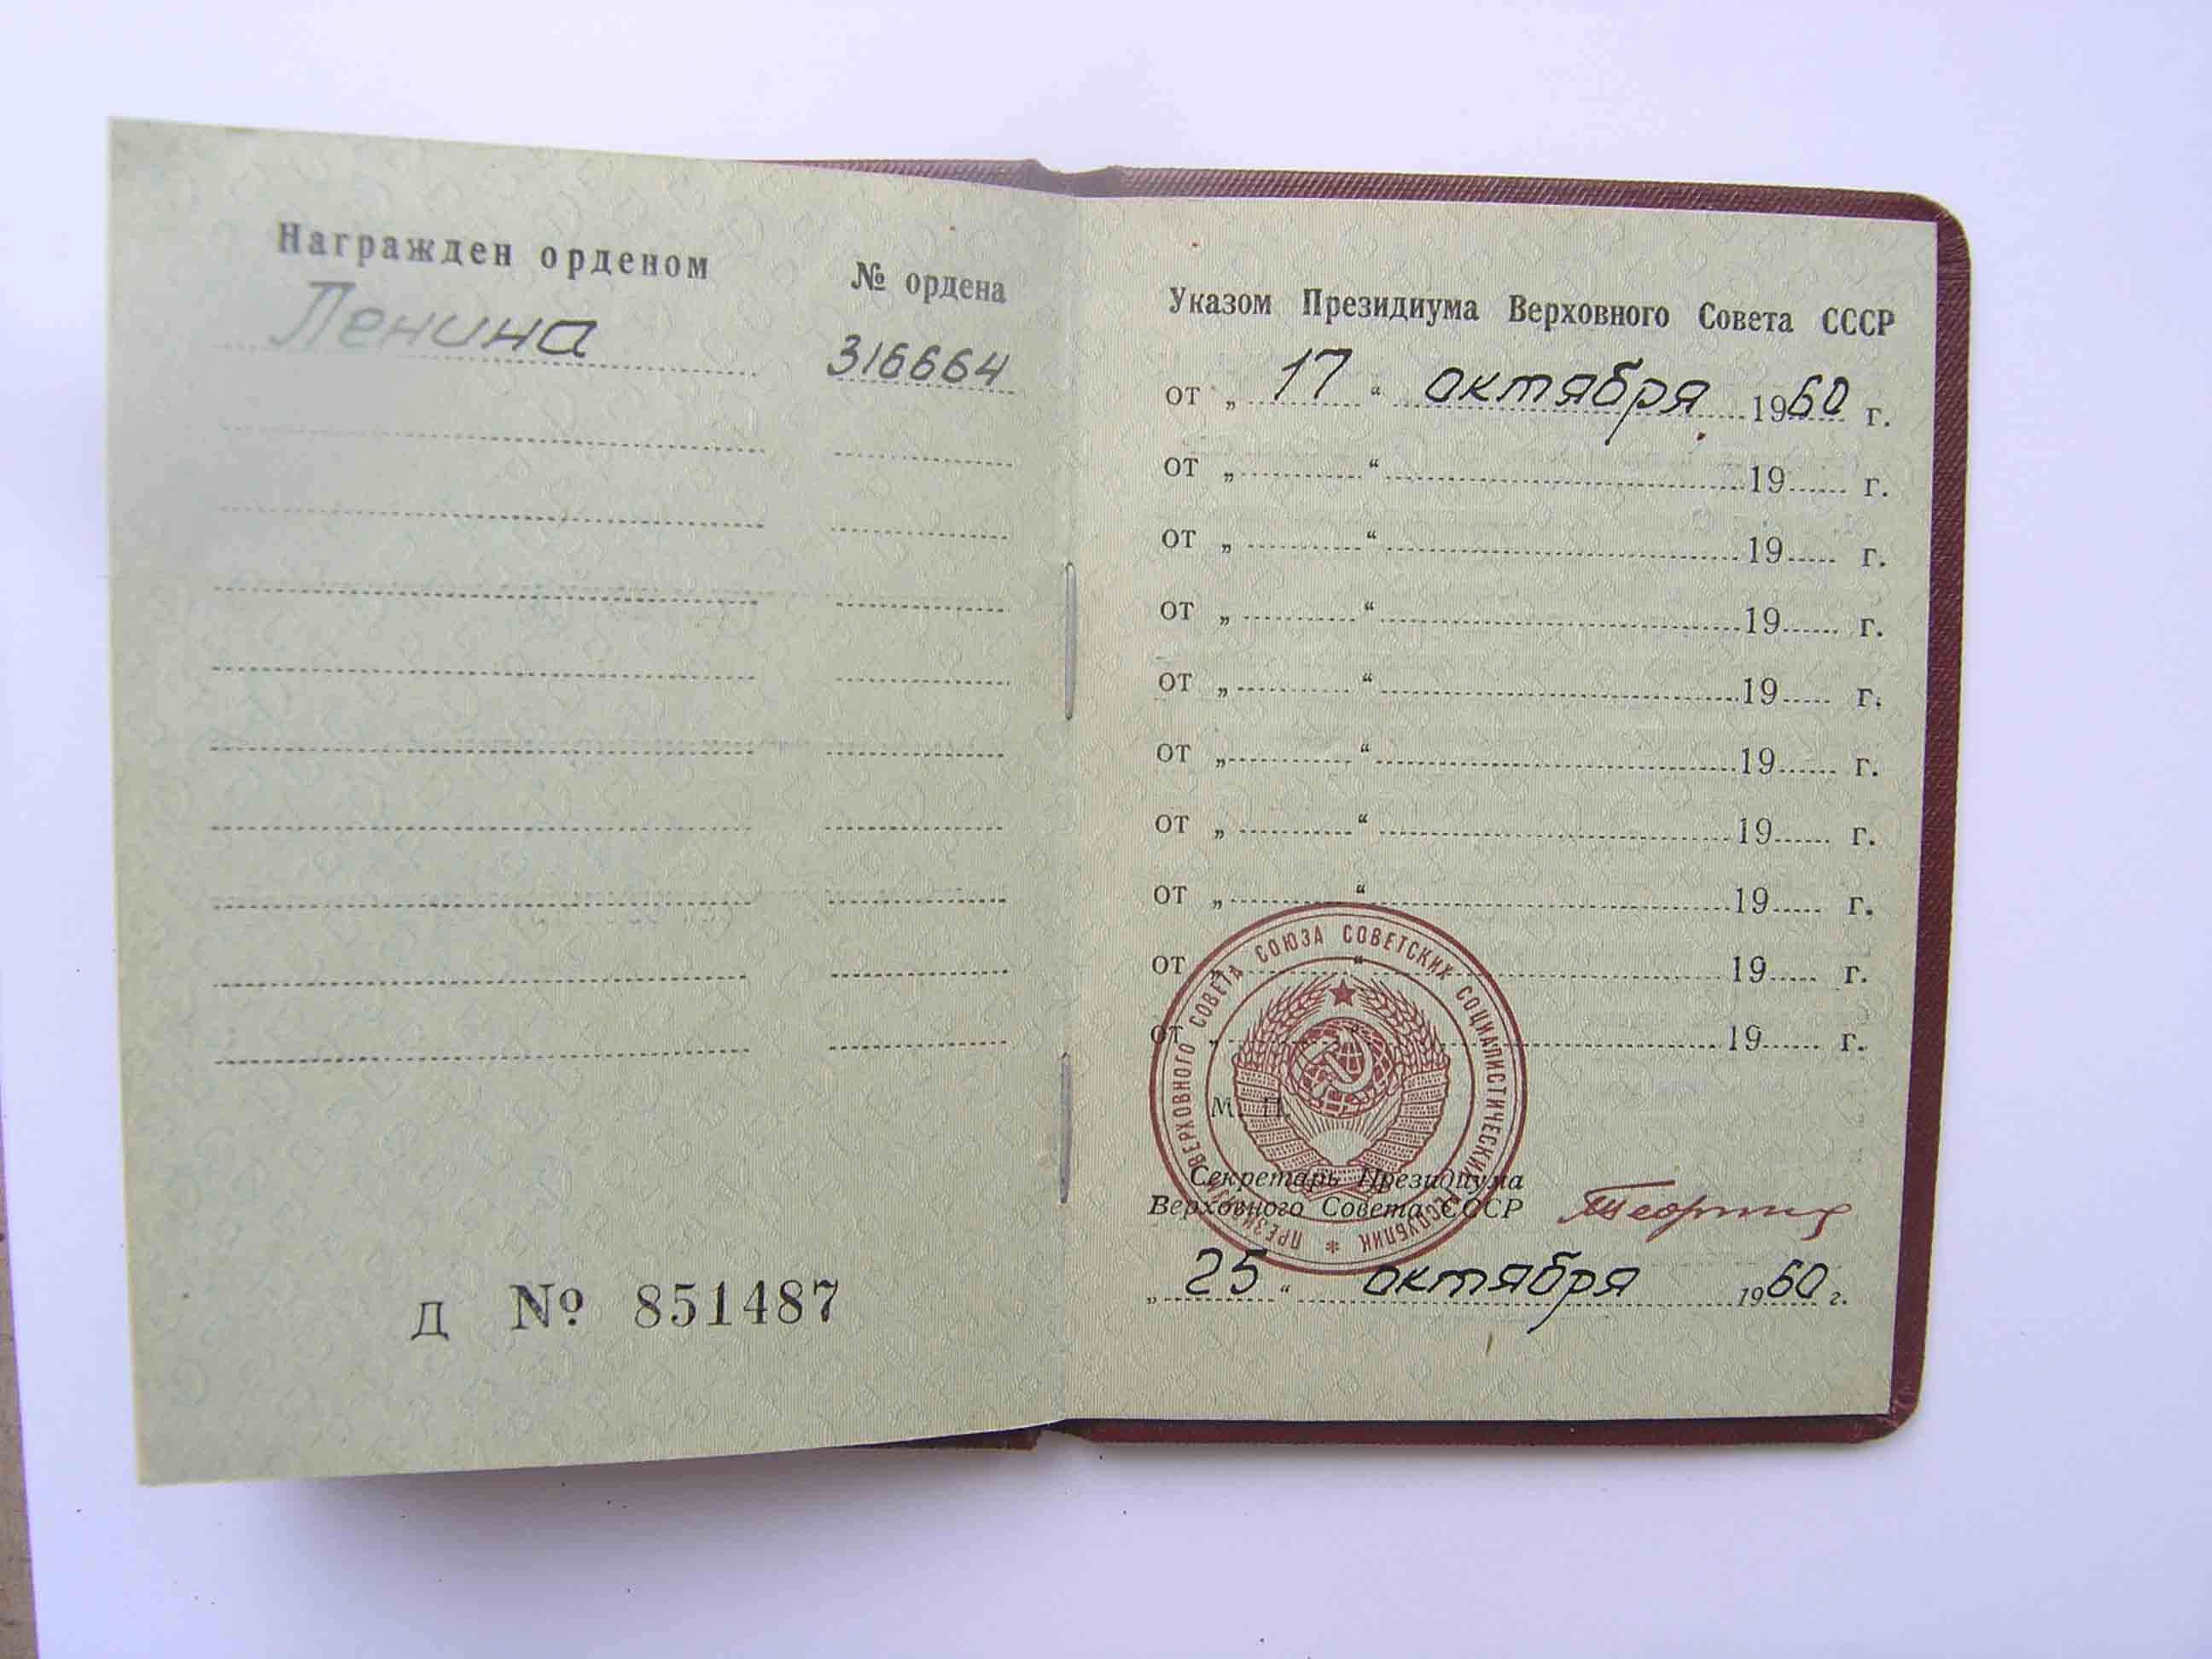 Награжден орденом № ордена
Ленина 316664
Д № 851487
Указом Президиума Верховного Совета СССР
от „ 17 “ октября 1960 г.
от „ “ 19 г.
от „ “ 19 г.
от „ “ 19 г.
от „ “ 19 г.
от „ “ 19 г.
от „ “ 19 г.
от „ “ 19 г.
от „ “ 19 г.
от „ “ 19 г.
М. П.
ПРЕЗИДИУМ ВЕРХОВНОГО СОВЕТА СОЮЗА СОВЕТСКИХ СОЦИАЛИСТИЧЕСКИХ РЕСПУБЛИК *
Секретарь Президиума
Верховного Совета СССР
„ 25 “ октября 1960 г.